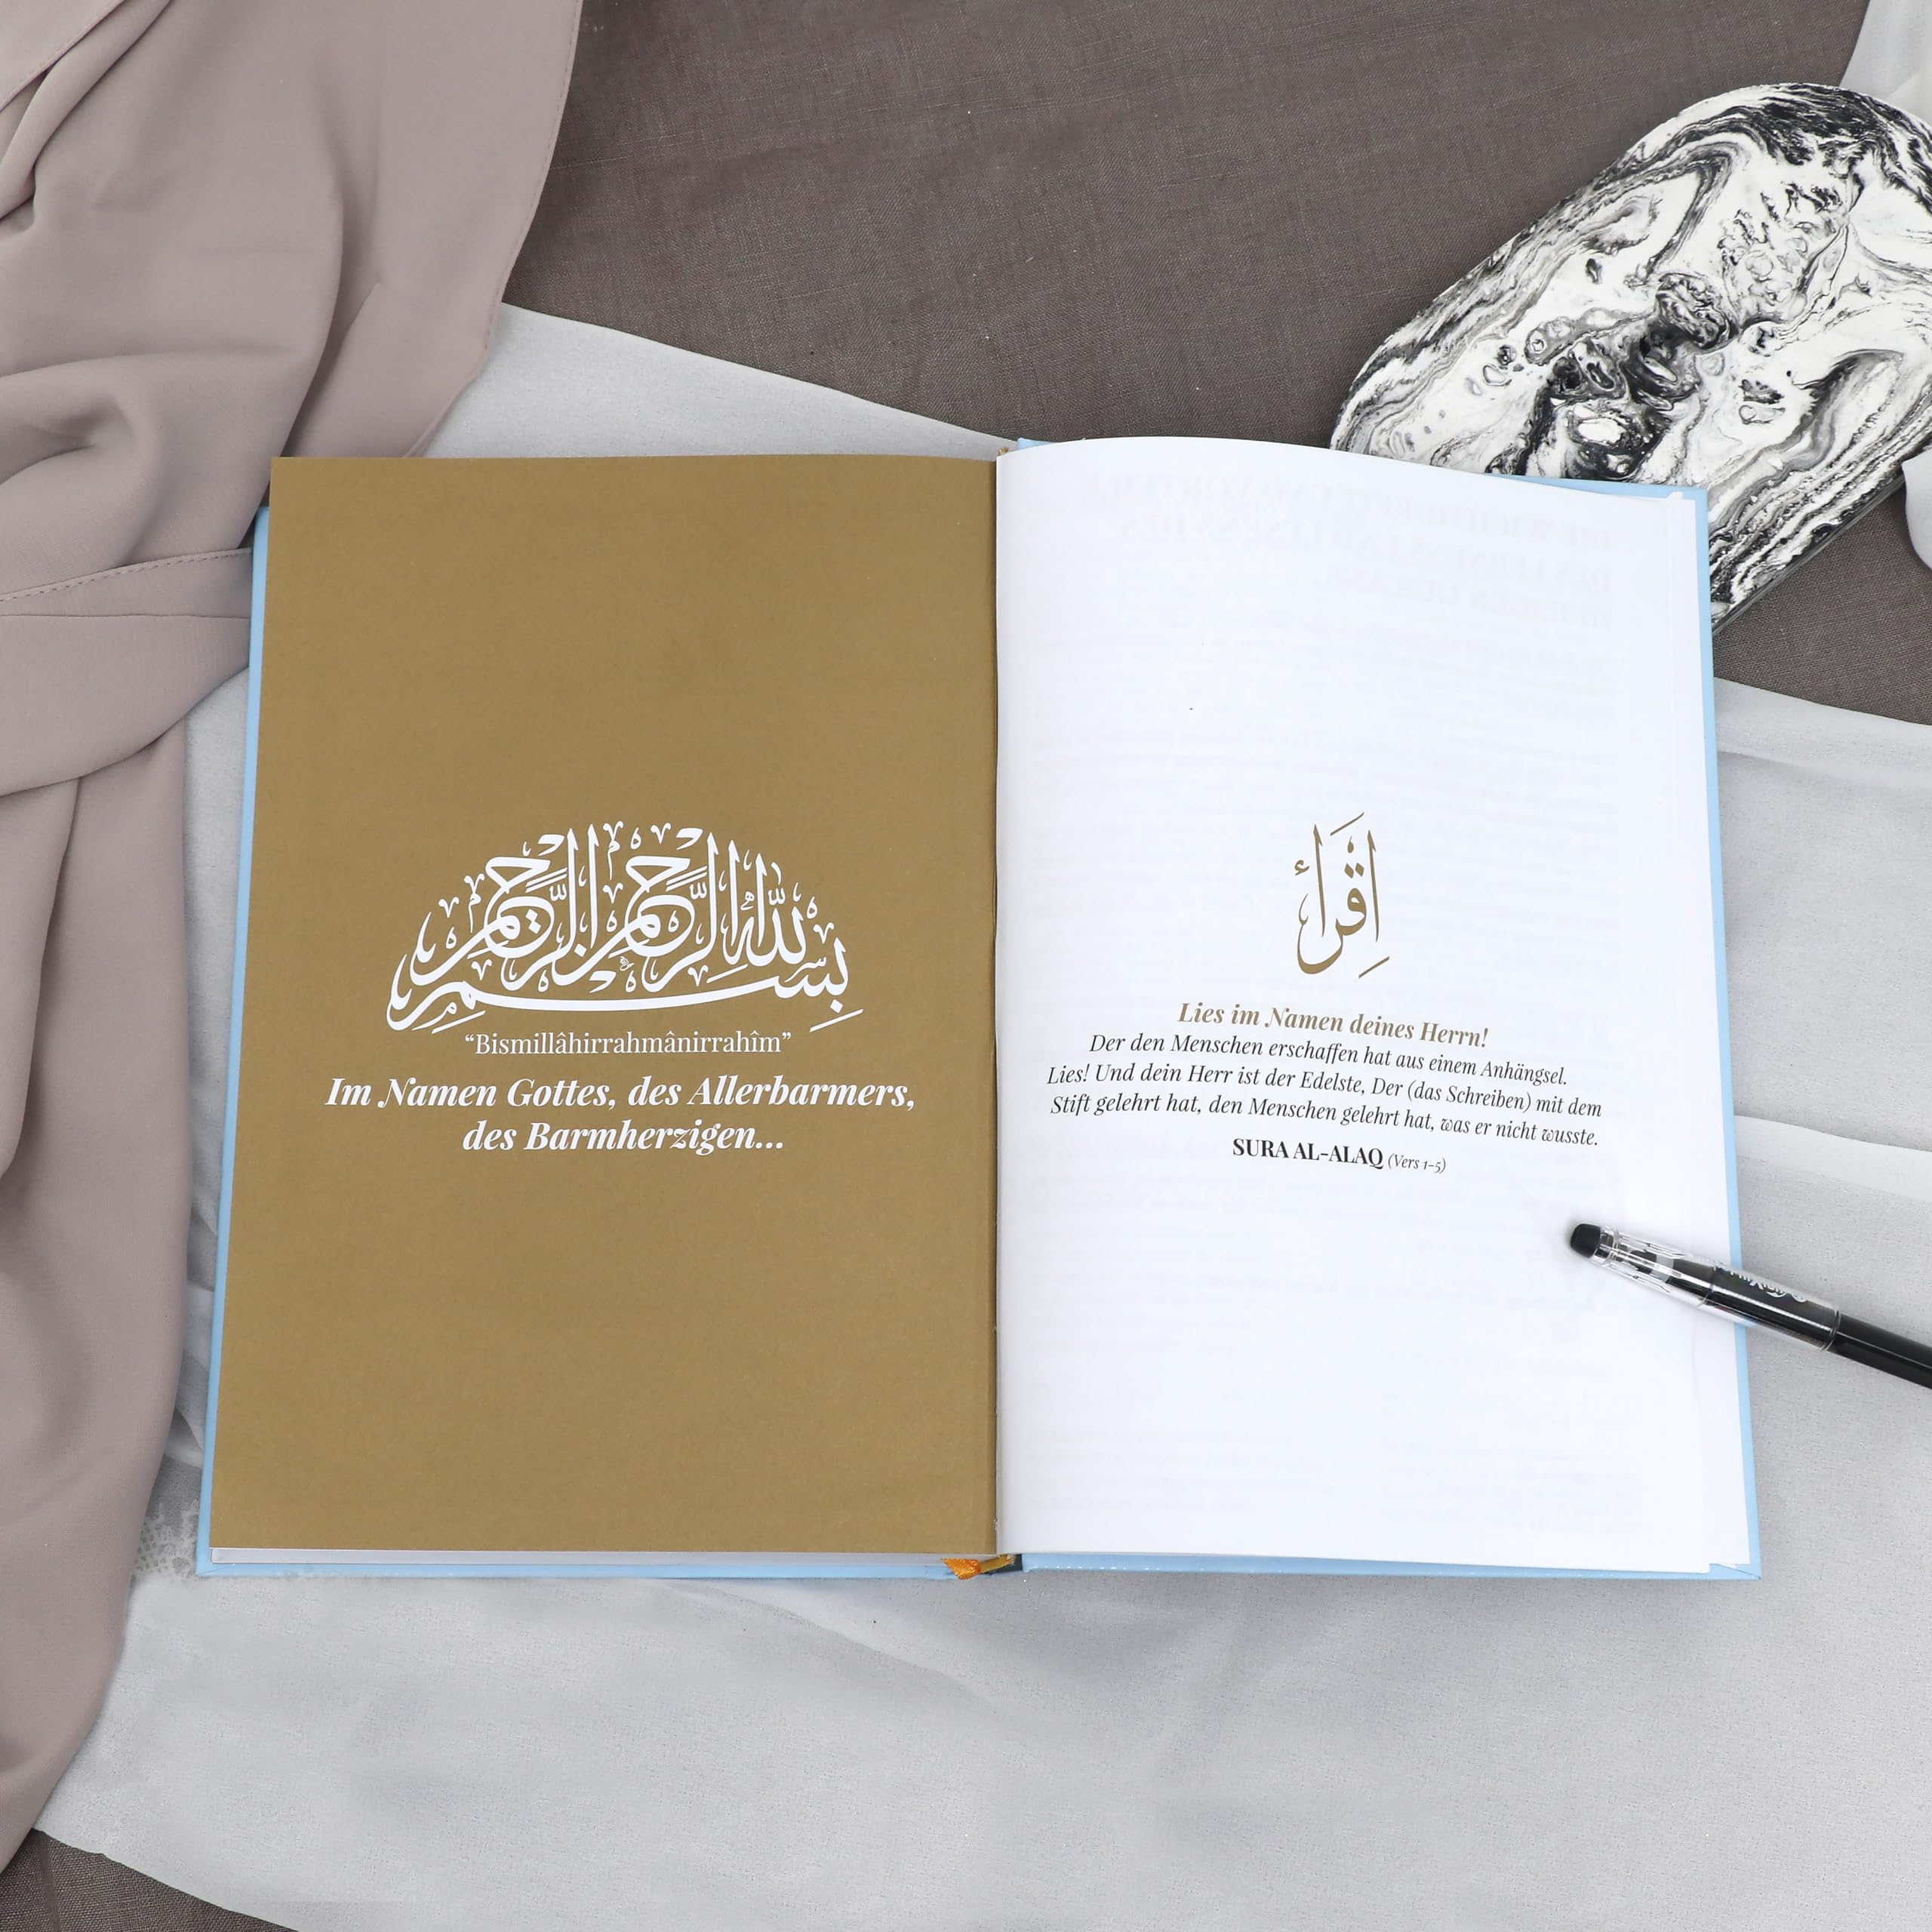 بِسْمِ اللّٰهِ الرَّحْمٰنِ الرَّحِيمِ
“Bismillâhirrahmânirrahîm”
Im Namen Gottes, des Allerbarmers,
des Barmherzigen...
اِقْرَأْ
Lies im Namen deines Herrn!
Der den Menschen erschaffen hat aus einem Anhängsel.
Lies! Und dein Herr ist der Edelste, Der (das Schreiben) mit dem
Stift gelehrt hat, den Menschen gelehrt hat, was er nicht wusste.
SURA AL-ALAQ (Vers 1-5)